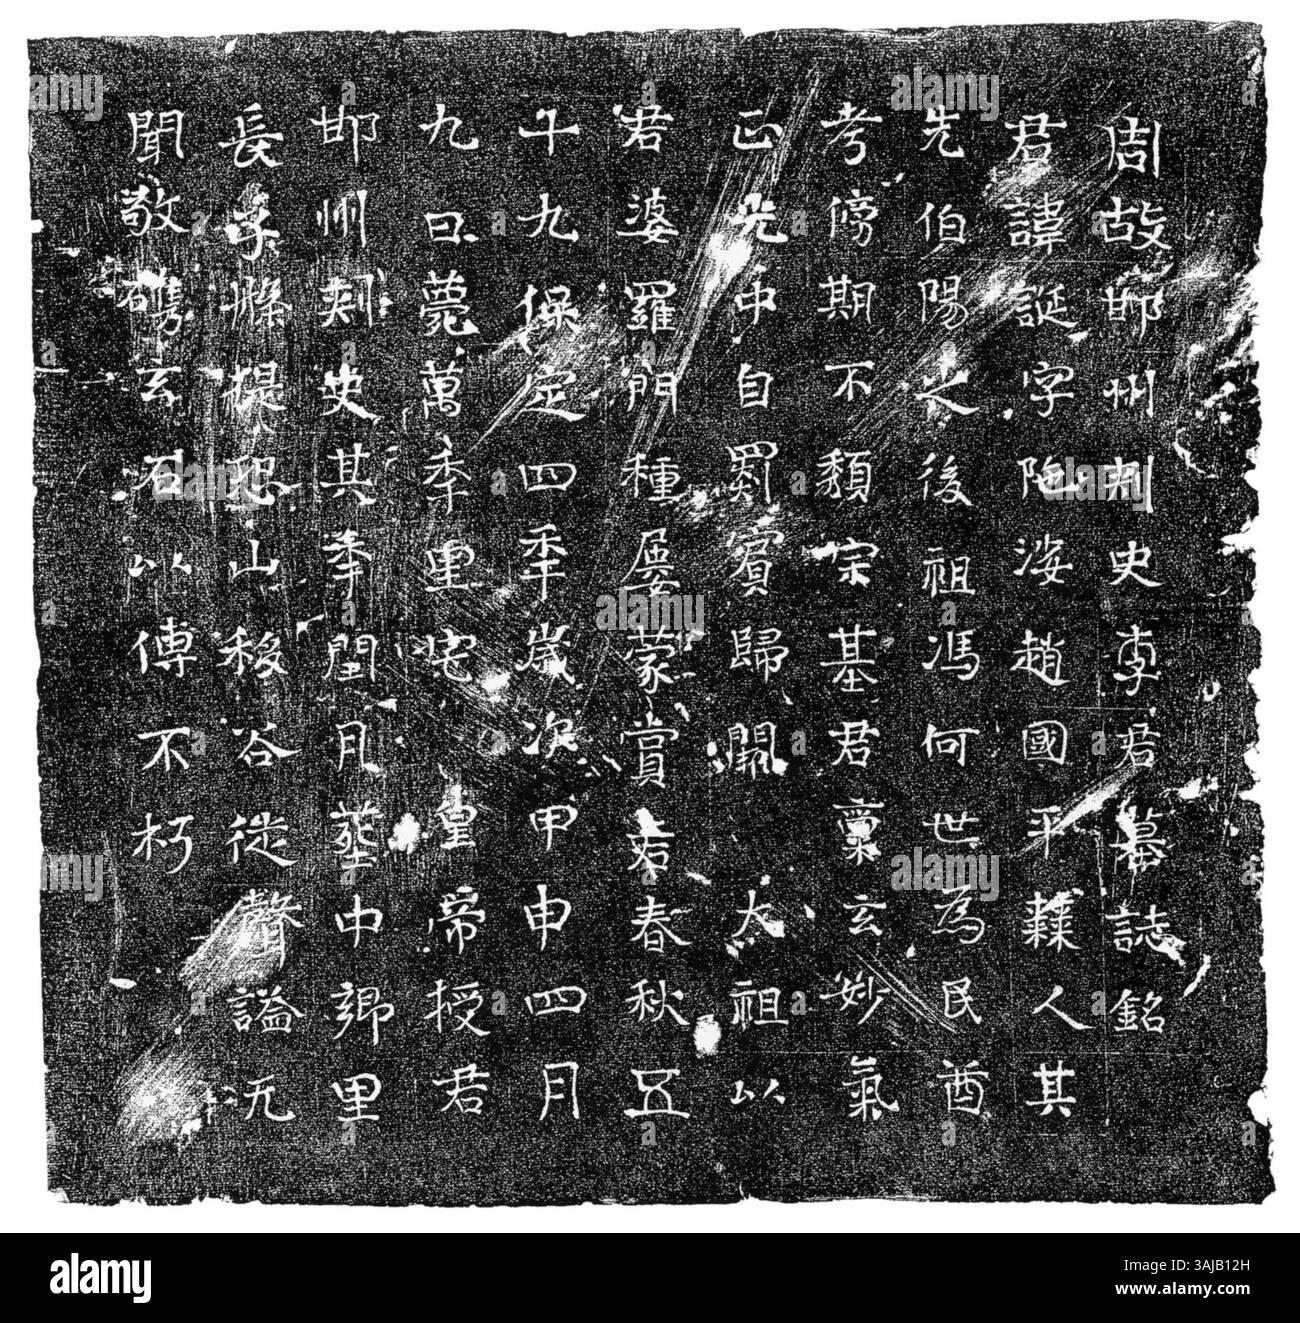 周故邯州刺史李君墓誌銘
君諱誕字陁娑趙國平棘人其
先伯陽之後祖馮何世為民酋
考傍期不頹宗基君稟玄妙氣
正光中自罽賓歸闕太祖以
君婆羅門種屢蒙賞君春秋五
十九保定四年歲次甲申四月
九日薨萬季里宅皇帝授君
邯州刺史其季閏月葬中鄉里
長子槃提恐山移谷徙聲謚无
聞敬鐫玄石以傳不朽
alamy
Image ID: 3AJB12H
www.alamy.com